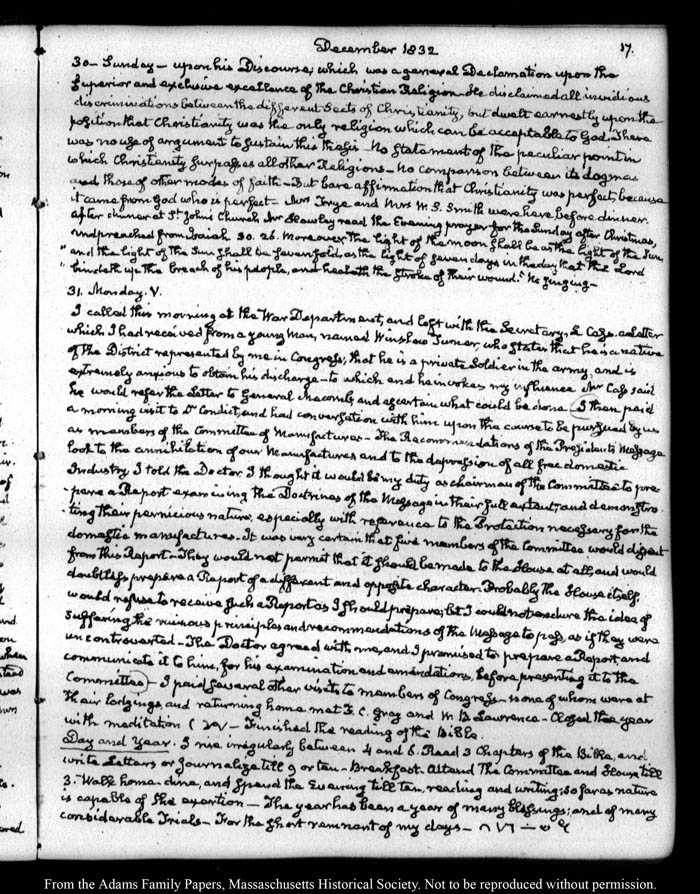 December 1832
17.
30 – Sunday – upon his Discourse; which was a general Declamation upon the
superior and exclusive excellence of the Christian Religion – He disclaimed all invidious
discriminations between the different Sects of Christianity, but dwelt earnestly upon the
position that Christianity was the only religion which can be acceptable to God. There
was no use of argument to sustain this thesis – No statement of the peculiar point in
which Christianity surpasses all other Religions – No comparison between its dogmas
and those of other modes of faith – But bare affirmation that Christianity was perfect, because
it came from God who is perfect – Mrs Frye and Mrs W. S. Smith were here before dinner.
after dinner at St. John's Church, Mr Hawley read the Evening prayer for the Sunday after Christmas,
and preached from Isaiah 30. 26. Moreover the light of the moon shall be as the light of the Sun,
"and the light of the Sun shall be sevenfold, as the light of seven days in the day that the Lord
"bindeth up the breach of his people, and healeth the stroke of their wound." No singing –
31. Monday. V.
I called this morning at the War Department, and left with the Secretary, L Cass. a Letter
which I had received from a young man, named Winslow Turner, who states that he is a native
of the District represented by me in Congress; that he is a private Soldier in the army, and is
extremely anxious to obtain his discharge – to which end he invokes my influence Mr Cass said
he would refer the Letter to General Macomb, and ascertain what could be done. I then paid
a morning visit to Dr Condict, and had conversation with him upon the course to be pursued by us
as members of the Committee of Manufactures – The Recommendations of the President's Message
look to the annihilation of our Manufactures and to the depression of all free domestic
Industry. I told the Doctor I thought it would be my duty as chairman of the Committee to pre
-pare a Report examining the Doctrines of the Message in their full extent, and demonstra
-ting their pernicious nature, especially with reference to the Protection necessary for the
domestic manufactures. It was very certain that five members of the Committee would dissent
from this Report – They would not permit that it should be made to the House at all, and would
doubtless prepare a Report of a different and opposite character. Probably the House itself,
would refuse to receive such a Report as I should prepare; but I could not endure the idea of
suffering the ruinous principles and recommendations of the Message to pass, as if they were
uncontroverted – The Doctor agreed with me, and I promised to prepare a Report, and
communicate it to him, for his examination and emendations, before presenting it to the
Committee – I paid several other visits to members of Congress – none of whom were at
their lodgings, and returning home met F. C. Gray and W B Lawrence – Closed the year
with meditation – Finished the reading of the Bible.
Day and Year. I rise irregularly between 4 and 6. Read 3 Chapters of the Bible, and
write Letters or Journalize till 9 or ten – Breakfast. Attend the Committee and House till
3. Walk home – dine, and spend the Evening till ten, reading and writing; so far as nature
is capable of the exertion – The year has been a year of many blessings; and of many
considerable Trials – For the short remnant of my days –
From the Adams Family Papers, Massachusetts Historical Society. Not to be reproduced without permission.